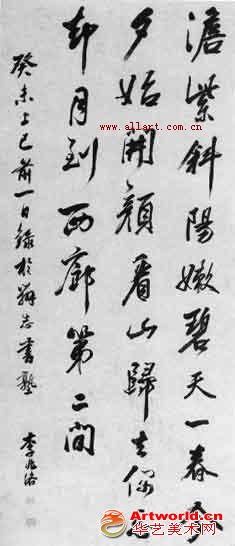 澹紫斜陽嫩碧天一春今
夕始開顏看山歸去偶忘
却月到西廊第二間
癸未上巳前一日錄於辨志書塾
李兆洛
www.allart.com.cn
Artworld.cn
华艺美术网